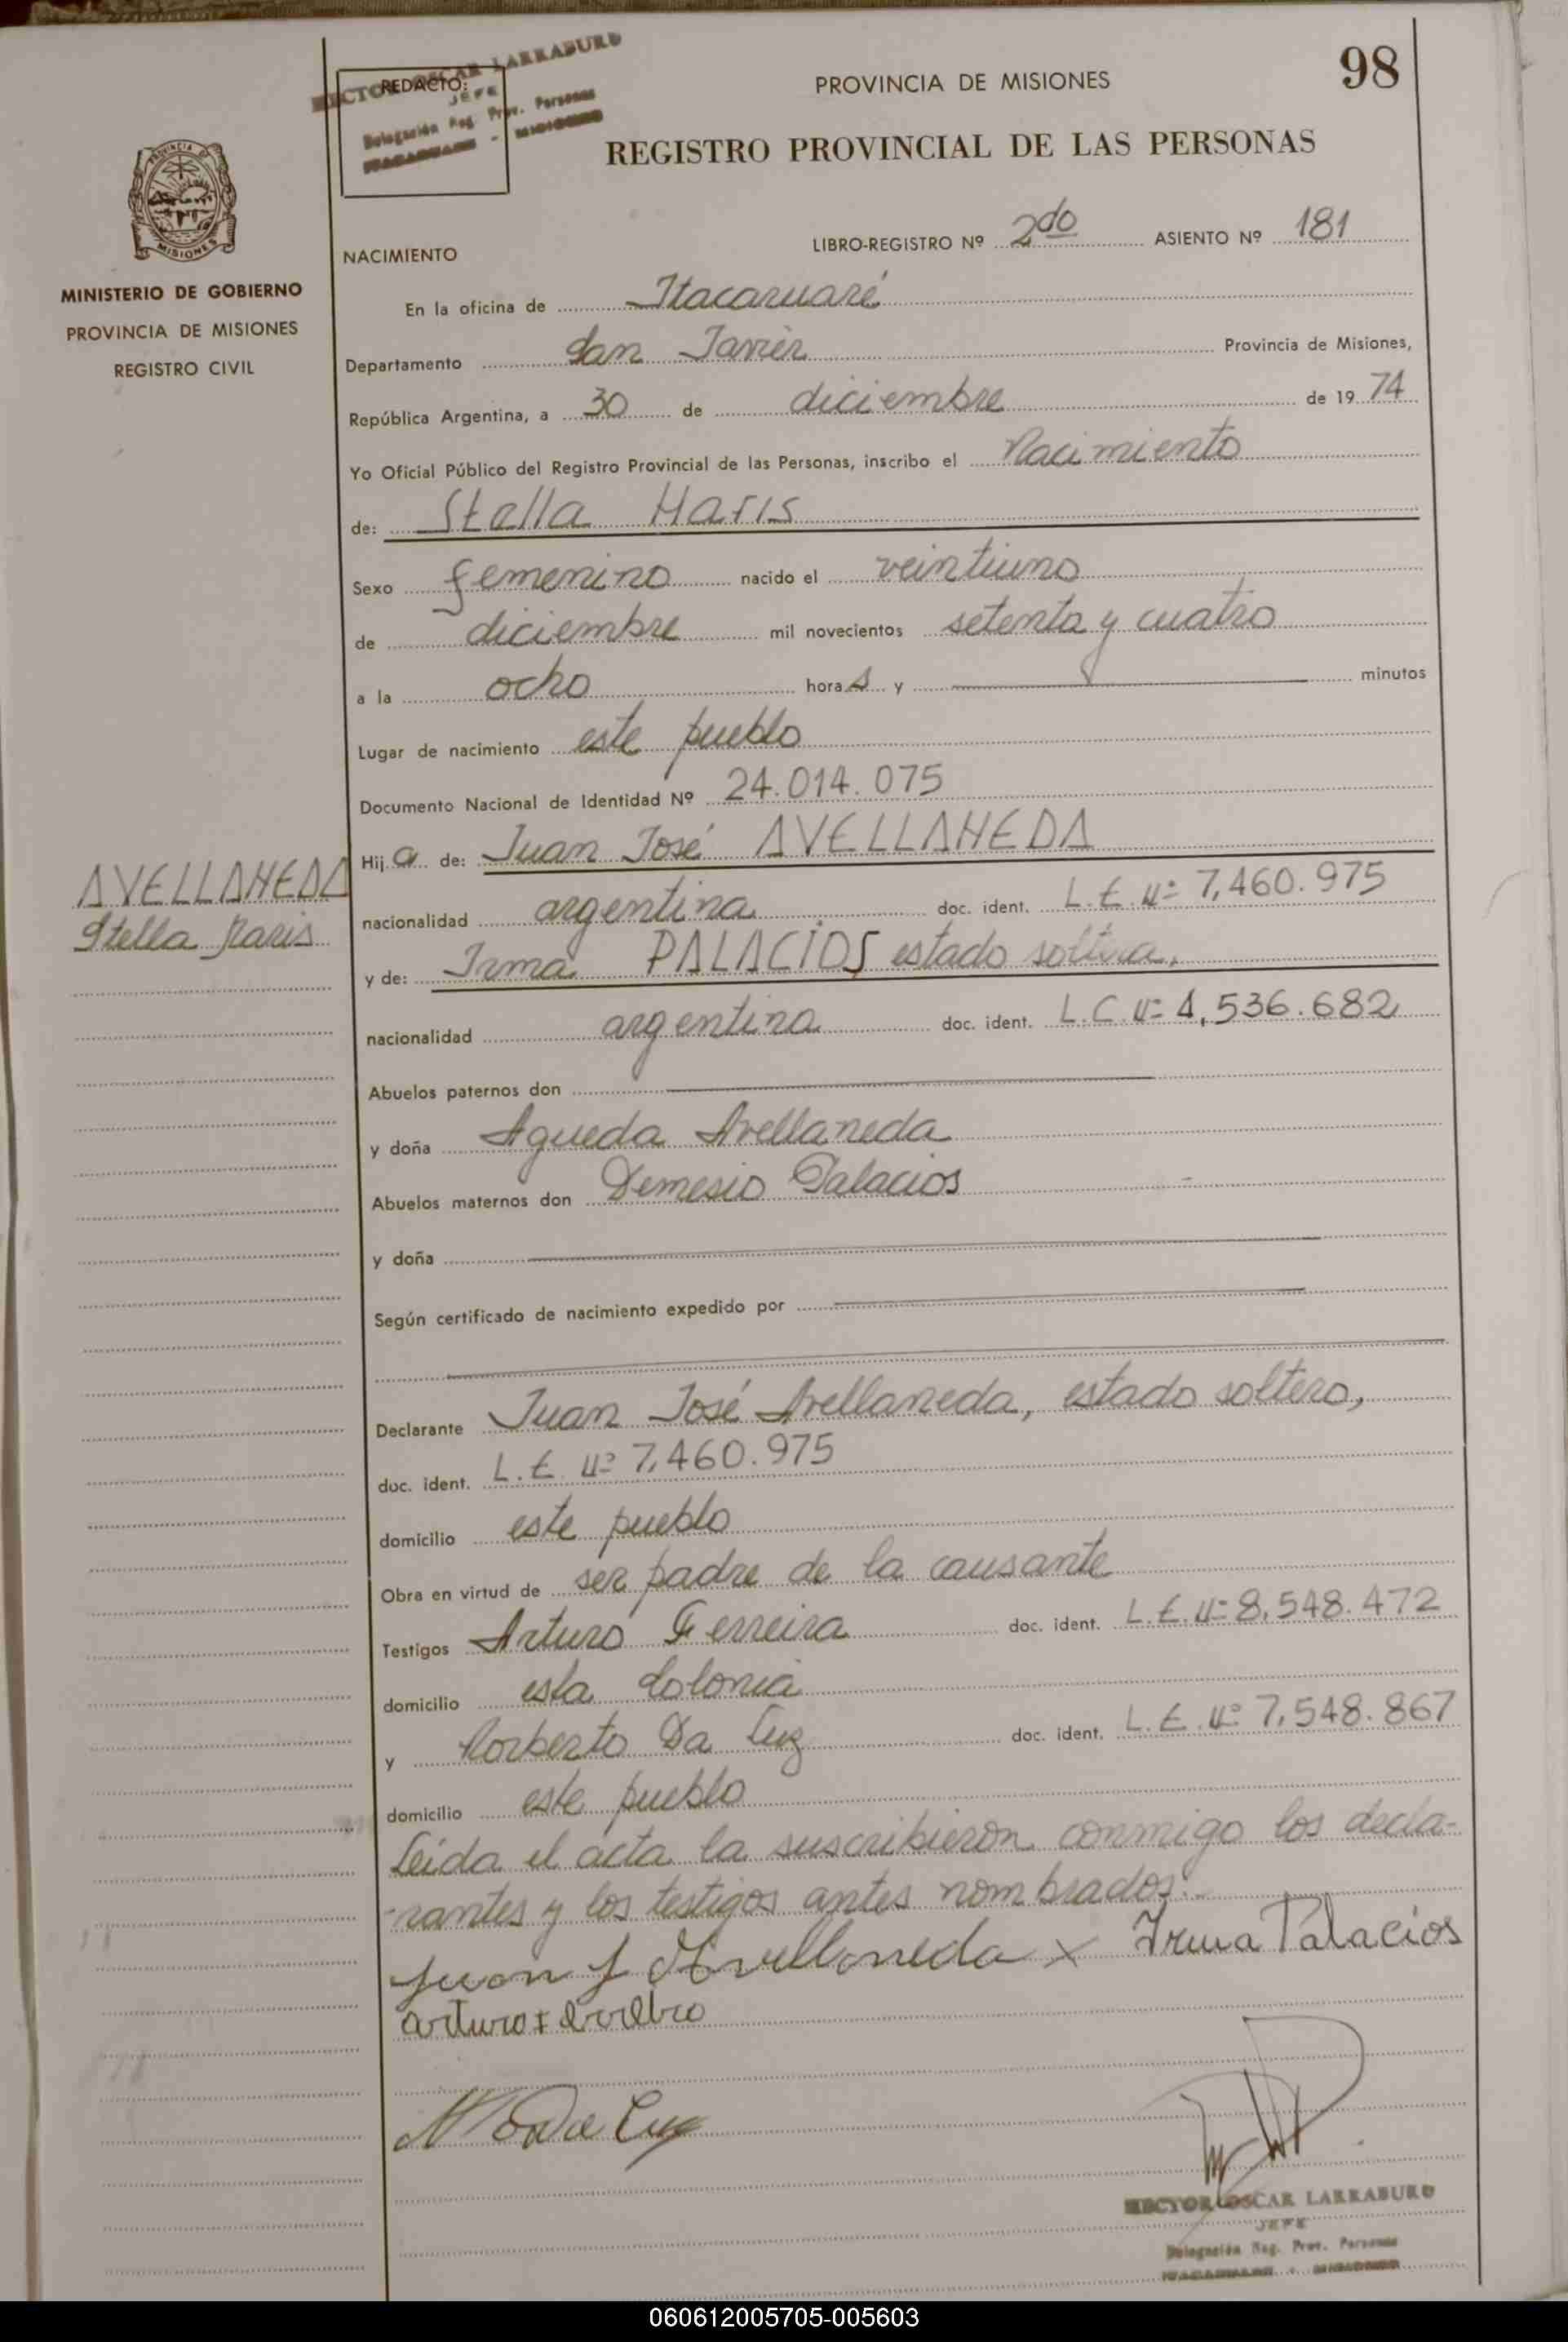 HECTOR OSCAR LARRABURU
REDACTO:
JEFE
Delegación Reg. Prov. Personas
ITACARUARE - MISIONES
PROVINCIA DE MISIONES
98
REGISTRO PROVINCIAL DE LAS PERSONAS
MISIONES
MINISTERIO DE GOBIERNO
PROVINCIA DE MISIONES
REGISTRO CIVIL
NACIMIENTO
LIBRO-REGISTRO Nº 2do ASIENTO Nº 181
En la oficina de Itacaruaré
Departamento San Javier Provincia de Misiones,
República Argentina, a 30 de diciembre de 19 74
Yo Oficial Público del Registro Provincial de las Personas, inscribo el Nacimiento
de: Stella Maris
Sexo femenino nacido el veintiuno
de diciembre mil novecientos setenta y cuatro
a la ocho hora s y minutos
Lugar de nacimiento este pueblo
Documento Nacional de Identidad Nº 24.014.075
Hij a de: Juan José AVELLANEDA
AVELLANEDA
Stella Maris
nacionalidad argentina doc. ident. L.E. Nº 7,460.975
y de: Irma PALACIOS estado soltera,
nacionalidad argentina doc. ident. L.C. Nº 4,536.682
Abuelos paternos don
y doña Agueda Avellaneda
Abuelos maternos don Demesio Palacios
y doña
Según certificado de nacimiento expedido por
Declarante Juan José Avellaneda, estado soltero,
doc. ident. L.E. Nº 7,460.975
domicilio este pueblo
Obra en virtud de ser padre de la causante
Testigos Arturo Ferreira doc. ident. L.E. Nº 8,548.472
domicilio esta Colonia
y Norberto Da Luz doc. ident. L.E. Nº 7,548.867
domicilio este pueblo
Leída el acta la suscribieron conmigo los decla-
rantes y los testigos antes nombrados.
Juan J Avellaneda x Irma Palacios
arturo
N Da Luz
HECTOR OSCAR LARRABURU
JEFE
Delegación Reg. Prov. Personas
ITACARUARE - MISIONES
060612005705-005603